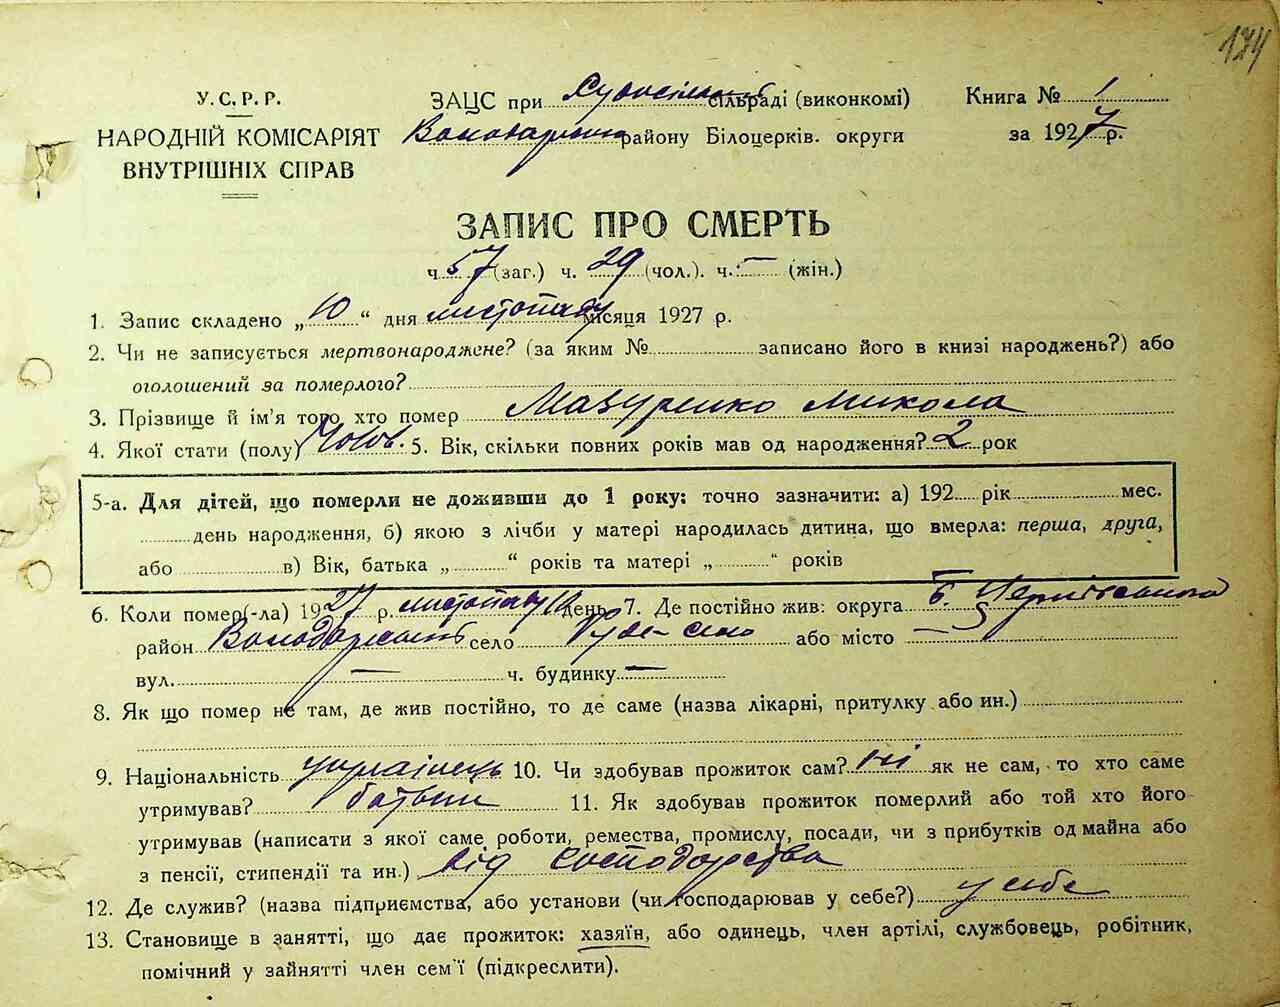 174
У.С.Р.Р.
НАРОДНІЙ КОМІСАРІЯТ
ВНУТРІШНІХ СПРАВ
ЗАЦС при сільраді (виконкомі)
району Білоцерків. округи
Книга № 1
за 1927 р.
ЗАПИС ПРО СМЕРТЬ
ч. 57 (заг.) ч. 29 (чол.). ч. — (жін.)
1. Запис складено „10“ дня листопаду місяця 1927 р.
2. Чи не записується мертвонароджене? (за яким № записано його в книзі народжень?) або
оголошений за померлого?
3. Прізвище й ім'я того, хто помер Мазуренко Микола
4. Якої стати (полу) Чолов. 5. Вік, скільки повних років мав од народження? 2 рок
5-а. Для дітей, що померли не доживши до 1 року: точно зазначити: а) 192 рік мес.
день народження, б) якою з лічби у матері народилась дитина, що вмерла: перша, друга,
або в) Вік, батька „ “ років та матері „ “ років
6. Коли помер(-ла) 1927 р. листопаду 10 день 7. Де постійно жив: округа Б. Церківська
район Володарський село Рудо-село або місто —
вул. — ч. будинку —
8. Як що помер не там, де жив постійно, то де саме (назва лікарні, притулку або ин.)
9. Національність українець 10. Чи здобував прожиток сам? ні як не сам, то хто саме
утримував? батьки 11. Як здобував прожиток померлий або той хто його
утримував (написати з якої саме роботи, ремества, промислу, посади, чи з прибутків од майна або
з пенсії, стипендії та ин.) від господарства
12. Де служив? (назва підприємства, або установи (чи господарював у себе?) у себе
13. Становище в занятті, що дає прожиток: хазяїн, або одинець, член артілі, службовець, робітник,
помічний у зайнятті член сем'ї (підкреслити).